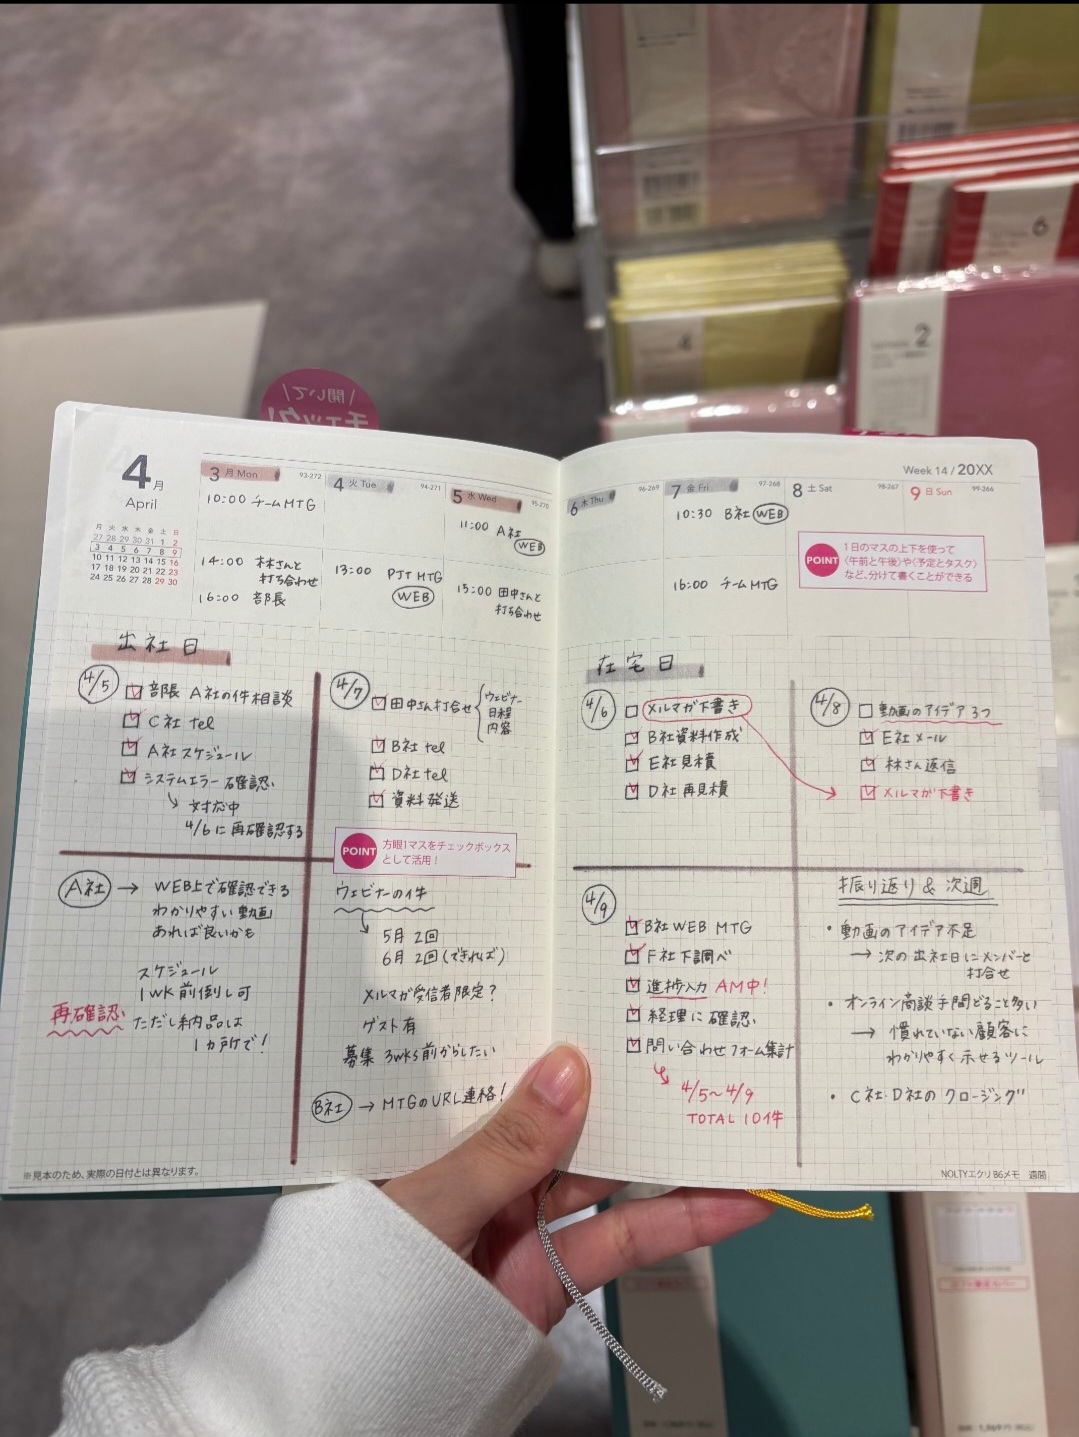 開いて
チェック!
4
6
2
4月
April
月 火 水 木 金 土 日
27 28 29 30 31 1 2
3 4 5 6 7 8 9
10 11 12 13 14 15 16
17 18 19 20 21 22 23
24 25 26 27 28 29 30
3 月 Mon 93-272
10:00 チームMTG
14:00 林さんと
打ち合わせ
16:00 部長
4 火 Tue 94-271
13:00 PJT MTG
WEB
5 水 Wed 95-270
11:00 A社
WEB
15:00 田中さんと
打ち合わせ
出社日
4/5
部長 A社の件相談
C社 tel
A社スケジュール
システムエラー確認
↘ 対応中
4/6に再確認する
4/7
田中さん打合せ
ウェビナー
日程
内容
B社 tel
D社 tel
資料発送
POINT 方眼1マスをチェックボックス
として活用!
A社 → WEB上で確認できる
わかりやすい動画
あれば良いかも
スケジュール
1WK前倒し可
再確認 ただし納品は
1カ所で!
ウェビナーの件
5月 2回
6月 2回(できれば)
メルマガ受信者限定?
ゲスト有
募集 3wks前からしたい
B社 → MTGのURL連絡!
※見本のため、実際の日付とは異なります。
Week 14 / 20XX
6 木 Thu 96-269
7 金 Fri 97-268
10:30 B社 WEB
16:00 チームMTG
8 土 Sat 98-267
9 日 Sun 99-266
POINT 1日のマスの上下を使って
〈午前と午後〉や〈予定とタスク〉
など、分けて書くことができる
在宅日
4/6
メルマガ下書き
B社資料作成
E社見積
D社再見積
4/8
動画のアイデア3つ
E社メール
林さん返信
メルマガ下書き
4/9
B社WEB MTG
F社下調べ
進捗入力 AM中!
経理に確認
問い合わせフォーム集計
4/5〜4/9
TOTAL 10件
振り返り & 次週
・動画のアイデア不足
→ 次の出社日にメンバーと
打合せ
・オンライン商談手間どること多い
→ 慣れていない顧客に
わかりやすく示せるツール
・C社・D社のクロージング
NOLTYエクリB6メモ 週間